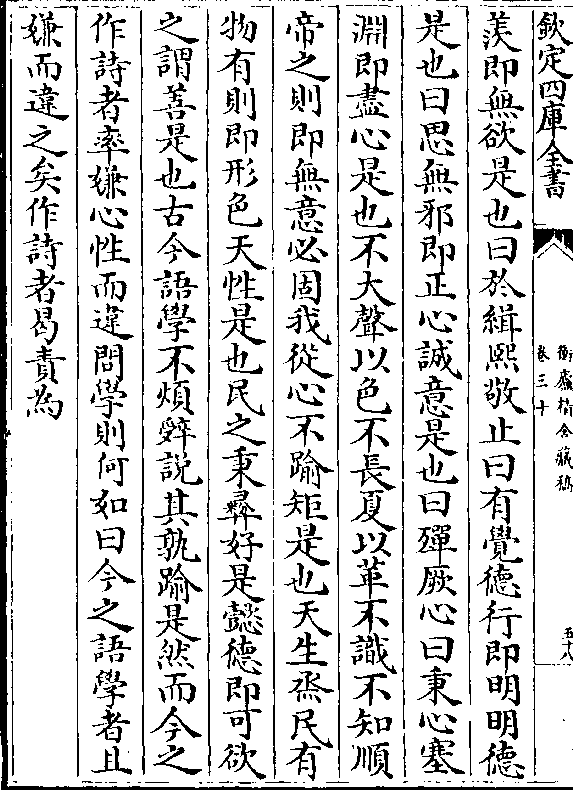 欽定四庫全書
衡廬精舍藏稿
卷三十
五十八
羡即無欲是也曰於緝熙敬止曰有覺德行即明明德
是也曰思無邪即正心誠意是也曰殫厥心曰秉心塞
淵即盡心是也不大聲以色不長夏以革不識不知順
帝之則即無意必固我從心不踰矩是也天生烝民有
物有則即形色天性是也民之秉彛好是懿德即可欲
之謂善是也古今語學不煩辭說其孰踰是然而今之
作詩者率嫌心性而違問學則何如曰今之語學者且
嫌而違之矣作詩者曷責焉